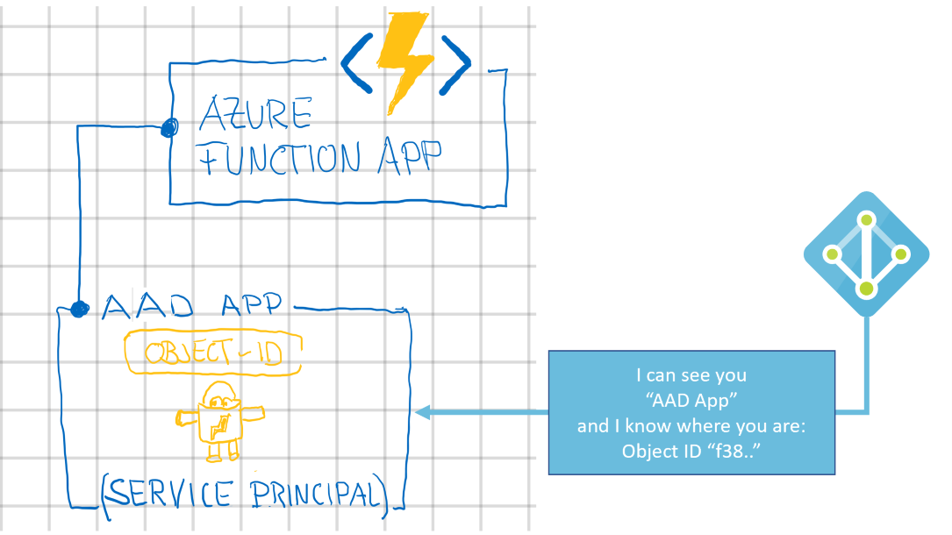 AZURE
FUNCTION APP
AAD APP
OBJECT-ID
(SERVICE PRINCIPAL)
I can see you
“AAD App”
and I know where you are:
Object ID “f38..”